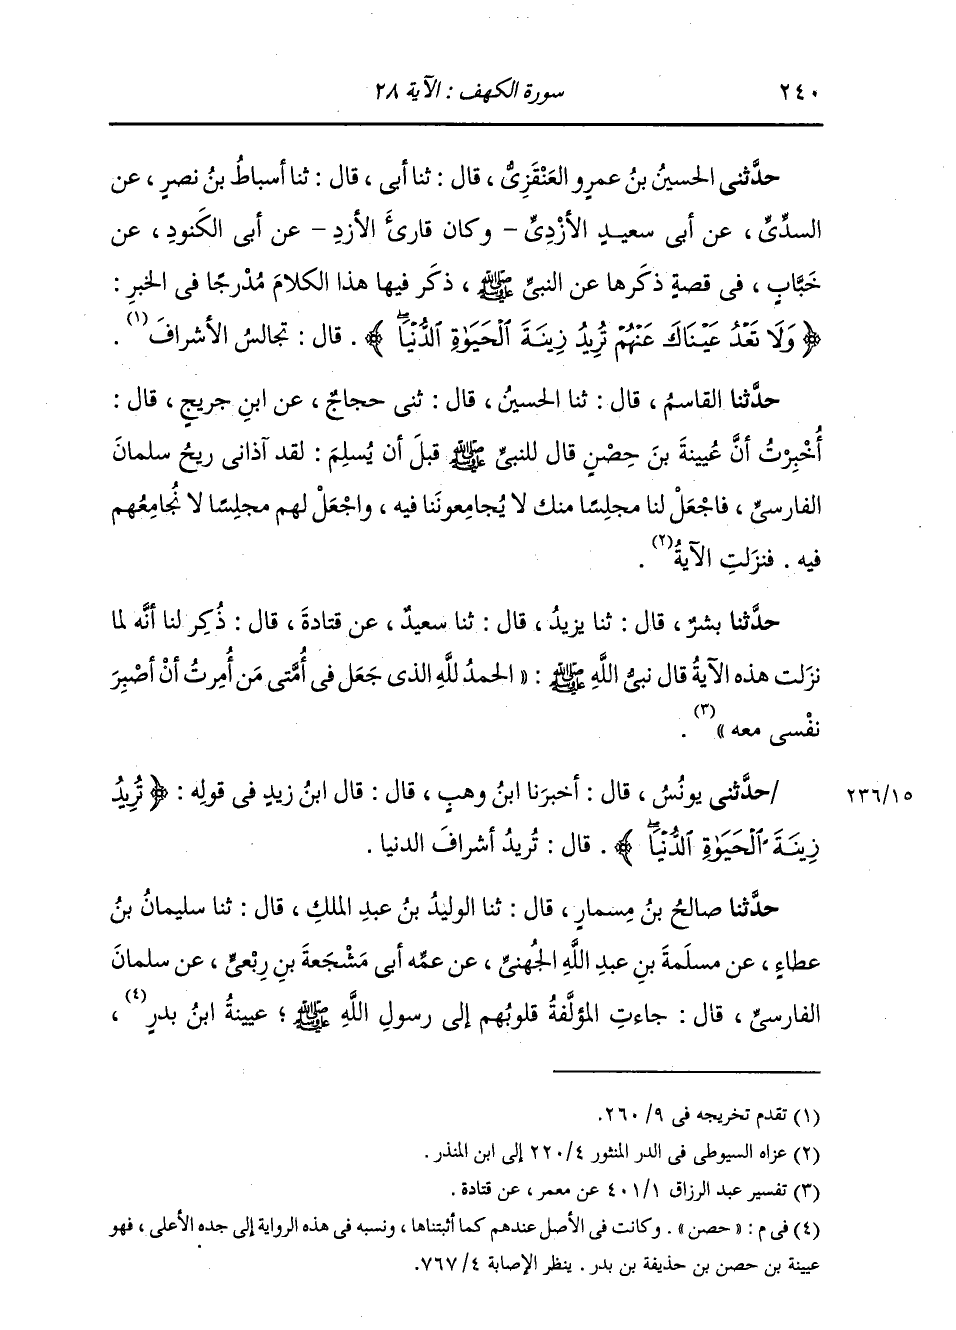 ٢٤٠ سورة الكهف : الآية ٢٨
حدَّثنى الحسينُ بنُ عمرٍو العَنْقَزِىُّ ، قال : ثنا أبى ، قال : ثنا أسباطُ بنُ نصرٍ ، عن
السدِّىِّ ، عن أبى سعيدٍ الأزْدِىِّ - وكان قارئَ الأزدِ - عن أبى الكَنودِ ، عن
خَبَّابٍ ، فى قصةٍ ذكَرها عن النبىِّ ﷺ ، ذكَر فيها هذا الكلامَ مُدْرجًا فى الخبرِ :
﴿ وَلَا تَعْدُ عَيْنَاكَ عَنْهُمْ تُرِيدُ زِينَةَ ٱلْحَيَوٰةِ ٱلدُّنْيَاۖ ﴾ . قال : تجالسُ الأشرافَ (١) .
حدَّثنا القاسمُ ، قال : ثنا الحسينُ ، قال : ثنى حجاجٌ ، عن ابنِ جريجٍ ، قال :
أُخبِرْتُ أنَّ عُيينةَ بنَ حِصْنٍ قال للنبىِّ ﷺ قبلَ أن يُسلِمَ : لقد آذانى ريحُ سلمانَ
الفارسىِّ ، فاجْعَلْ لنا مجلِسًا منك لا يُجامعونَنا فيه ، واجْعَلْ لهم مجلِسًا لا نُجامِعُهم
فيه . فنزَلتِ الآيةُ (٢) .
حدَّثنا بشرٌ ، قال : ثنا يزيدُ ، قال : ثنا سعيدٌ ، عن قتادةَ ، قال : ذُكِر لنا أنَّه لما
نزَلت هذه الآيةُ قال نبىُّ اللَّهِ ﷺ : « الحمدُ للَّهِ الذى جَعَل فى أُمَّتى مَن أُمِرتُ أنْ أصْبِرَ
نفْسى معه » (٣) .
/حدَّثنى يونُسُ ، قال : أخبرَنا ابنُ وهبٍ ، قال : قال ابنُ زيدٍ فى قولِه : ﴿ تُرِيدُ ٢٣٦/١٥
زِينَةَ ٱلْحَيَوٰةِ ٱلدُّنْيَاۖ ﴾ . قال : تُريدُ أشرافَ الدنيا .
حدَّثنا صالحُ بنُ مِسمارٍ ، قال : ثنا الوليدُ بنُ عبدِ الملكِ ، قال : ثنا سليمانُ بنُ
عطاءٍ ، عن مسلَمةَ بنِ عبدِ اللَّهِ الجُهنىِّ ، عن عمِّه أبى مَشْجَعةَ بنِ رِبْعىٍّ ، عن سلمانَ
الفارسىِّ ، قال : جاءتِ المؤلَّفةُ قلوبُهم إلى رسولِ اللَّهِ ﷺ ؛ عيينةُ ابنُ بدرٍ (٤) ،
(١) تقدم تخريجه فى ٩/ ٢٦٠.
(٢) عزاه السيوطى فى الدر المنثور ٢٢٠/٤ إلى ابن المنذر .
(٣) تفسير عبد الرزاق ٤٠١/١ عن معمر ، عن قتادة .
(٤) فى م : « حصن » . وكانت فى الأصل عندهم كما أثبتناها ، ونسبه فى هذه الرواية إلى جده الأعلى ، فهو
عيينة بن حصن بن حذيفة بن بدر . ينظر الإصابة ٤/ ٧٦٧.